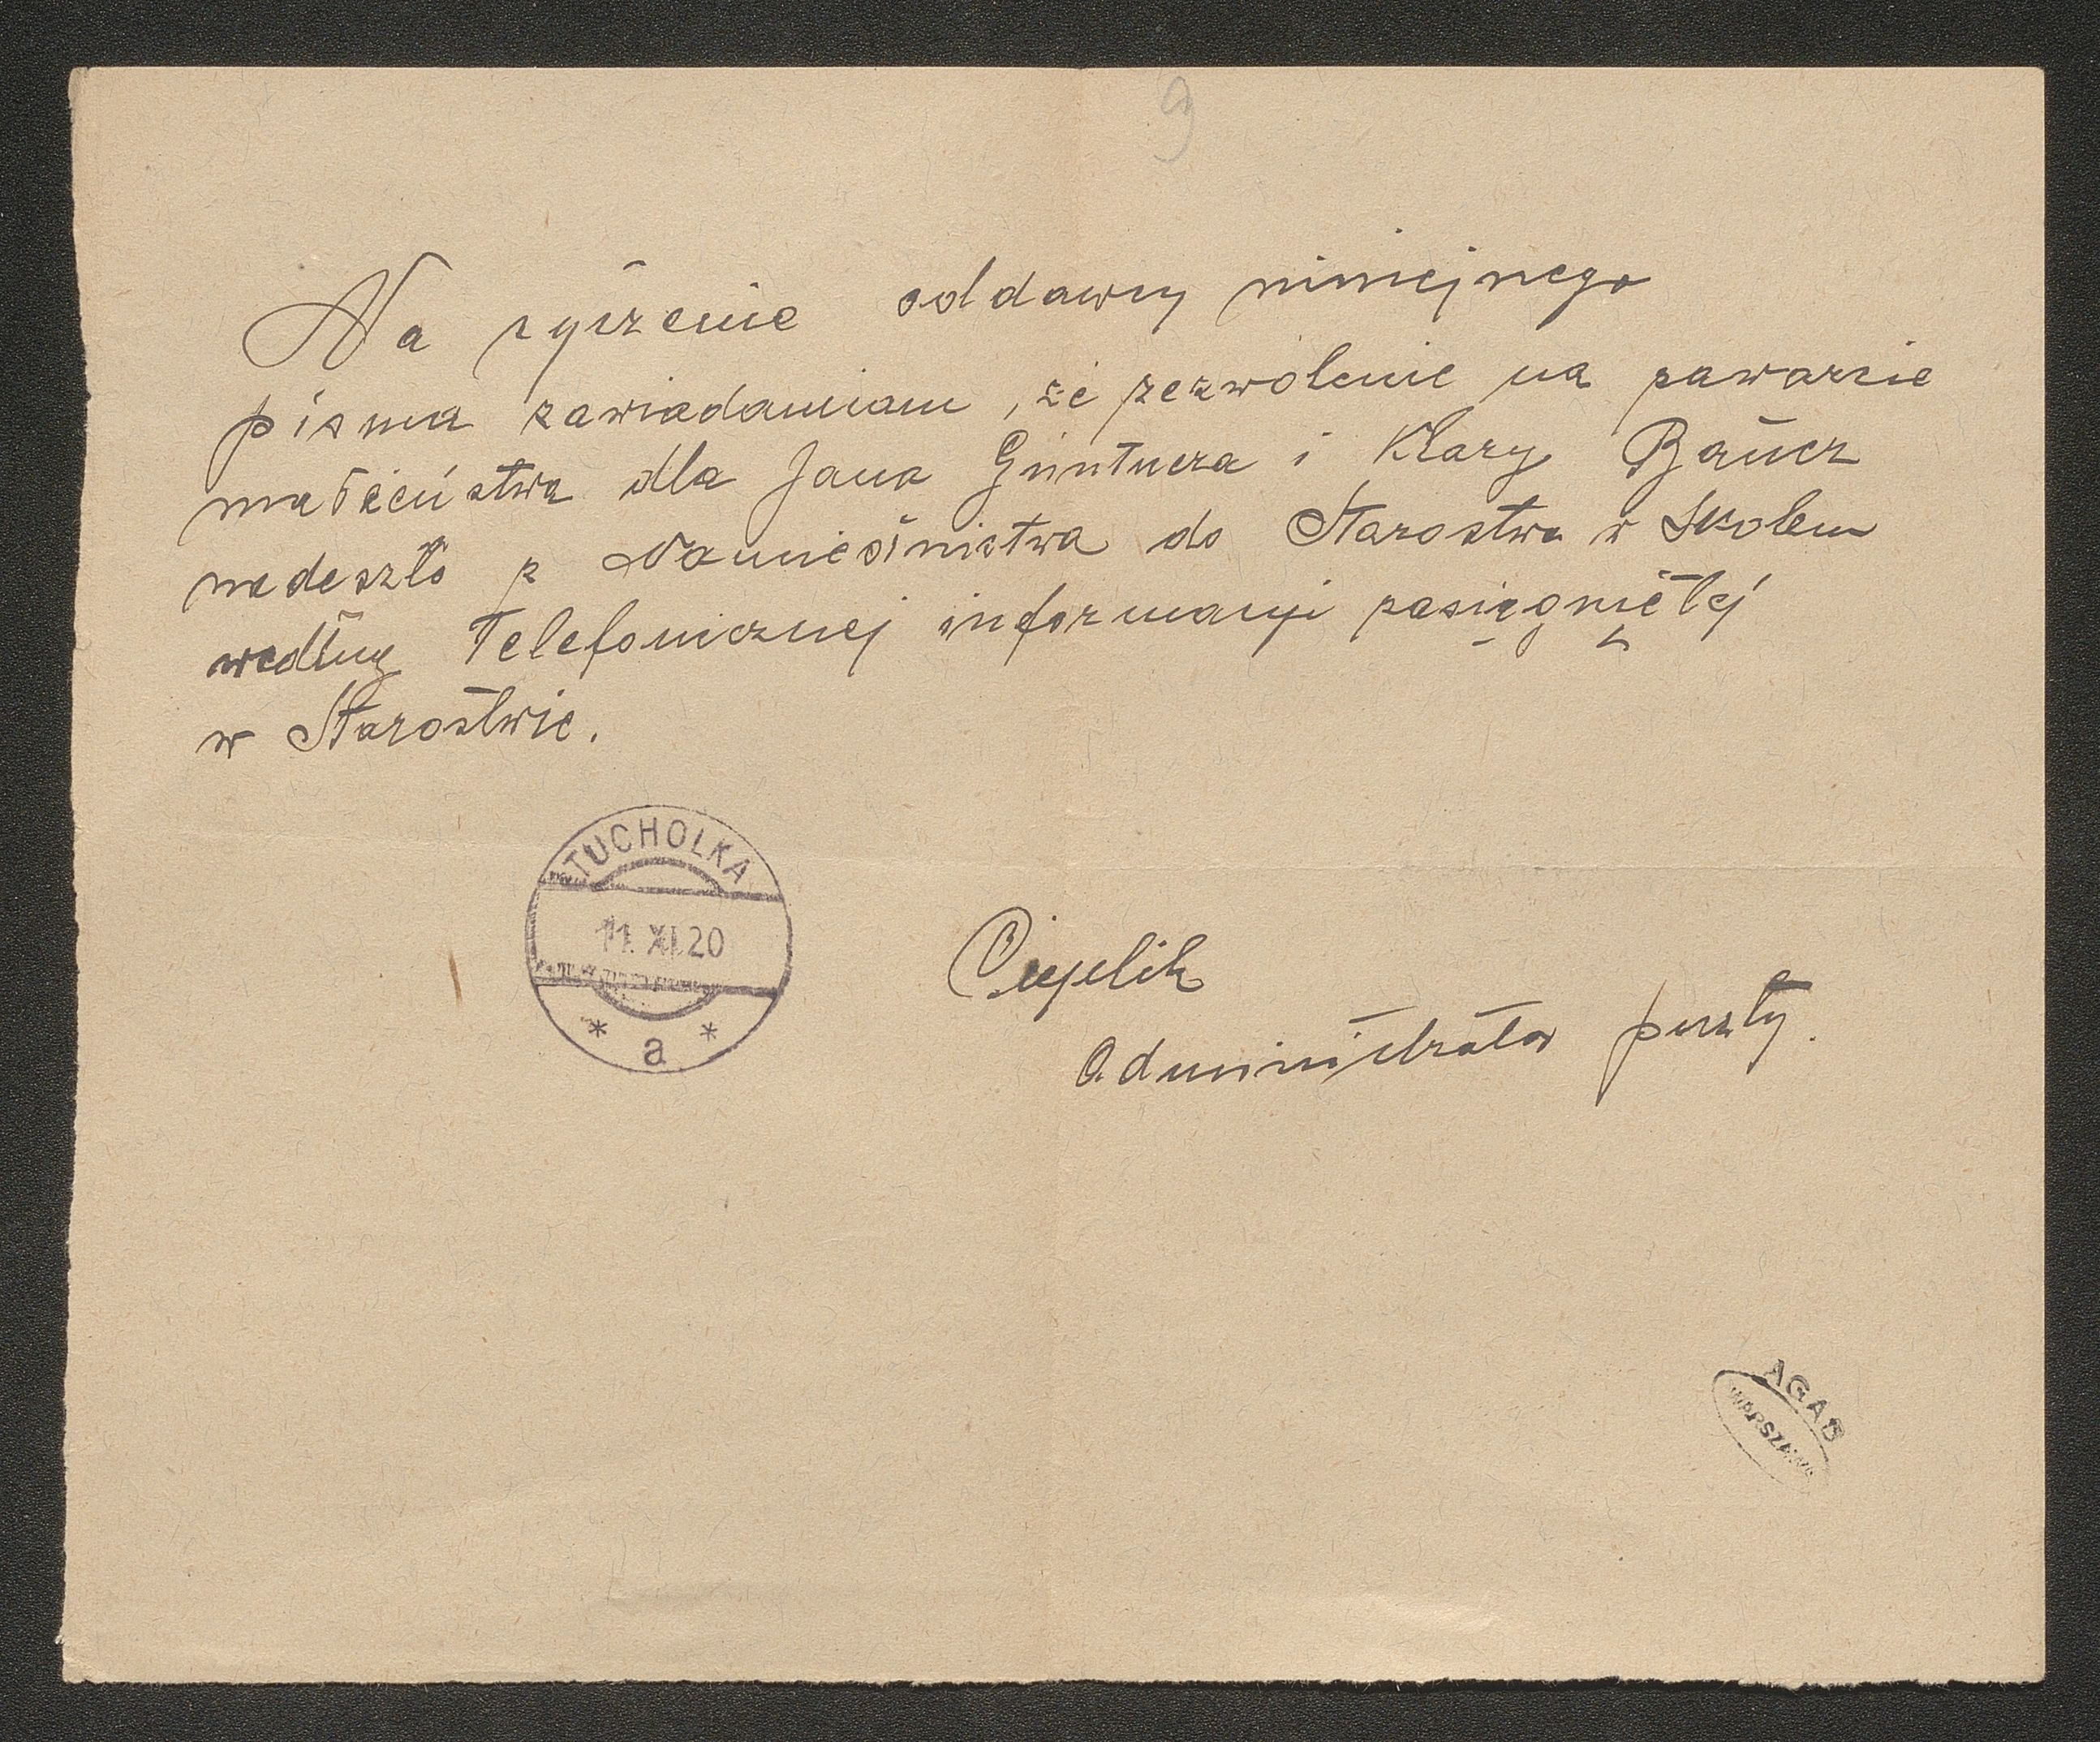 9
Na życzenie oddawcy niniejszego
pisma zawiadamiam, że zezwolenie na zawarcie
małżeństwa dla Jana Güntnera i Klary
nadeszło z Namieśnictwa do Starostwa w Skolem
według telefonicznej informacyi zasiągniętej
w Starostwie.
TUCHOLKA
11.XI.20
* a *
Cieplik
Administrator poczty.
AGAD
WARSZAWA